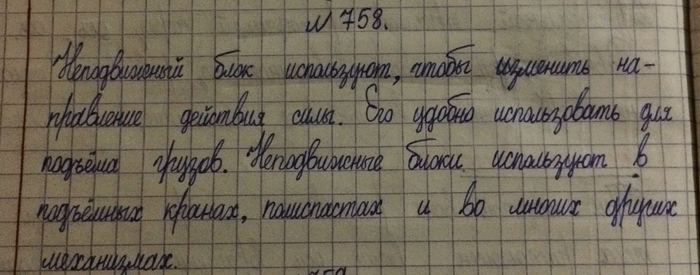 № 758.
Неподвижный блок используют, чтобы изменить на-
правление действия силы. Его удобно использовать для
подъёма грузов. Неподвижные блоки используют в
подъёмных кранах, полиспастах и во многих других
механизмах.
759